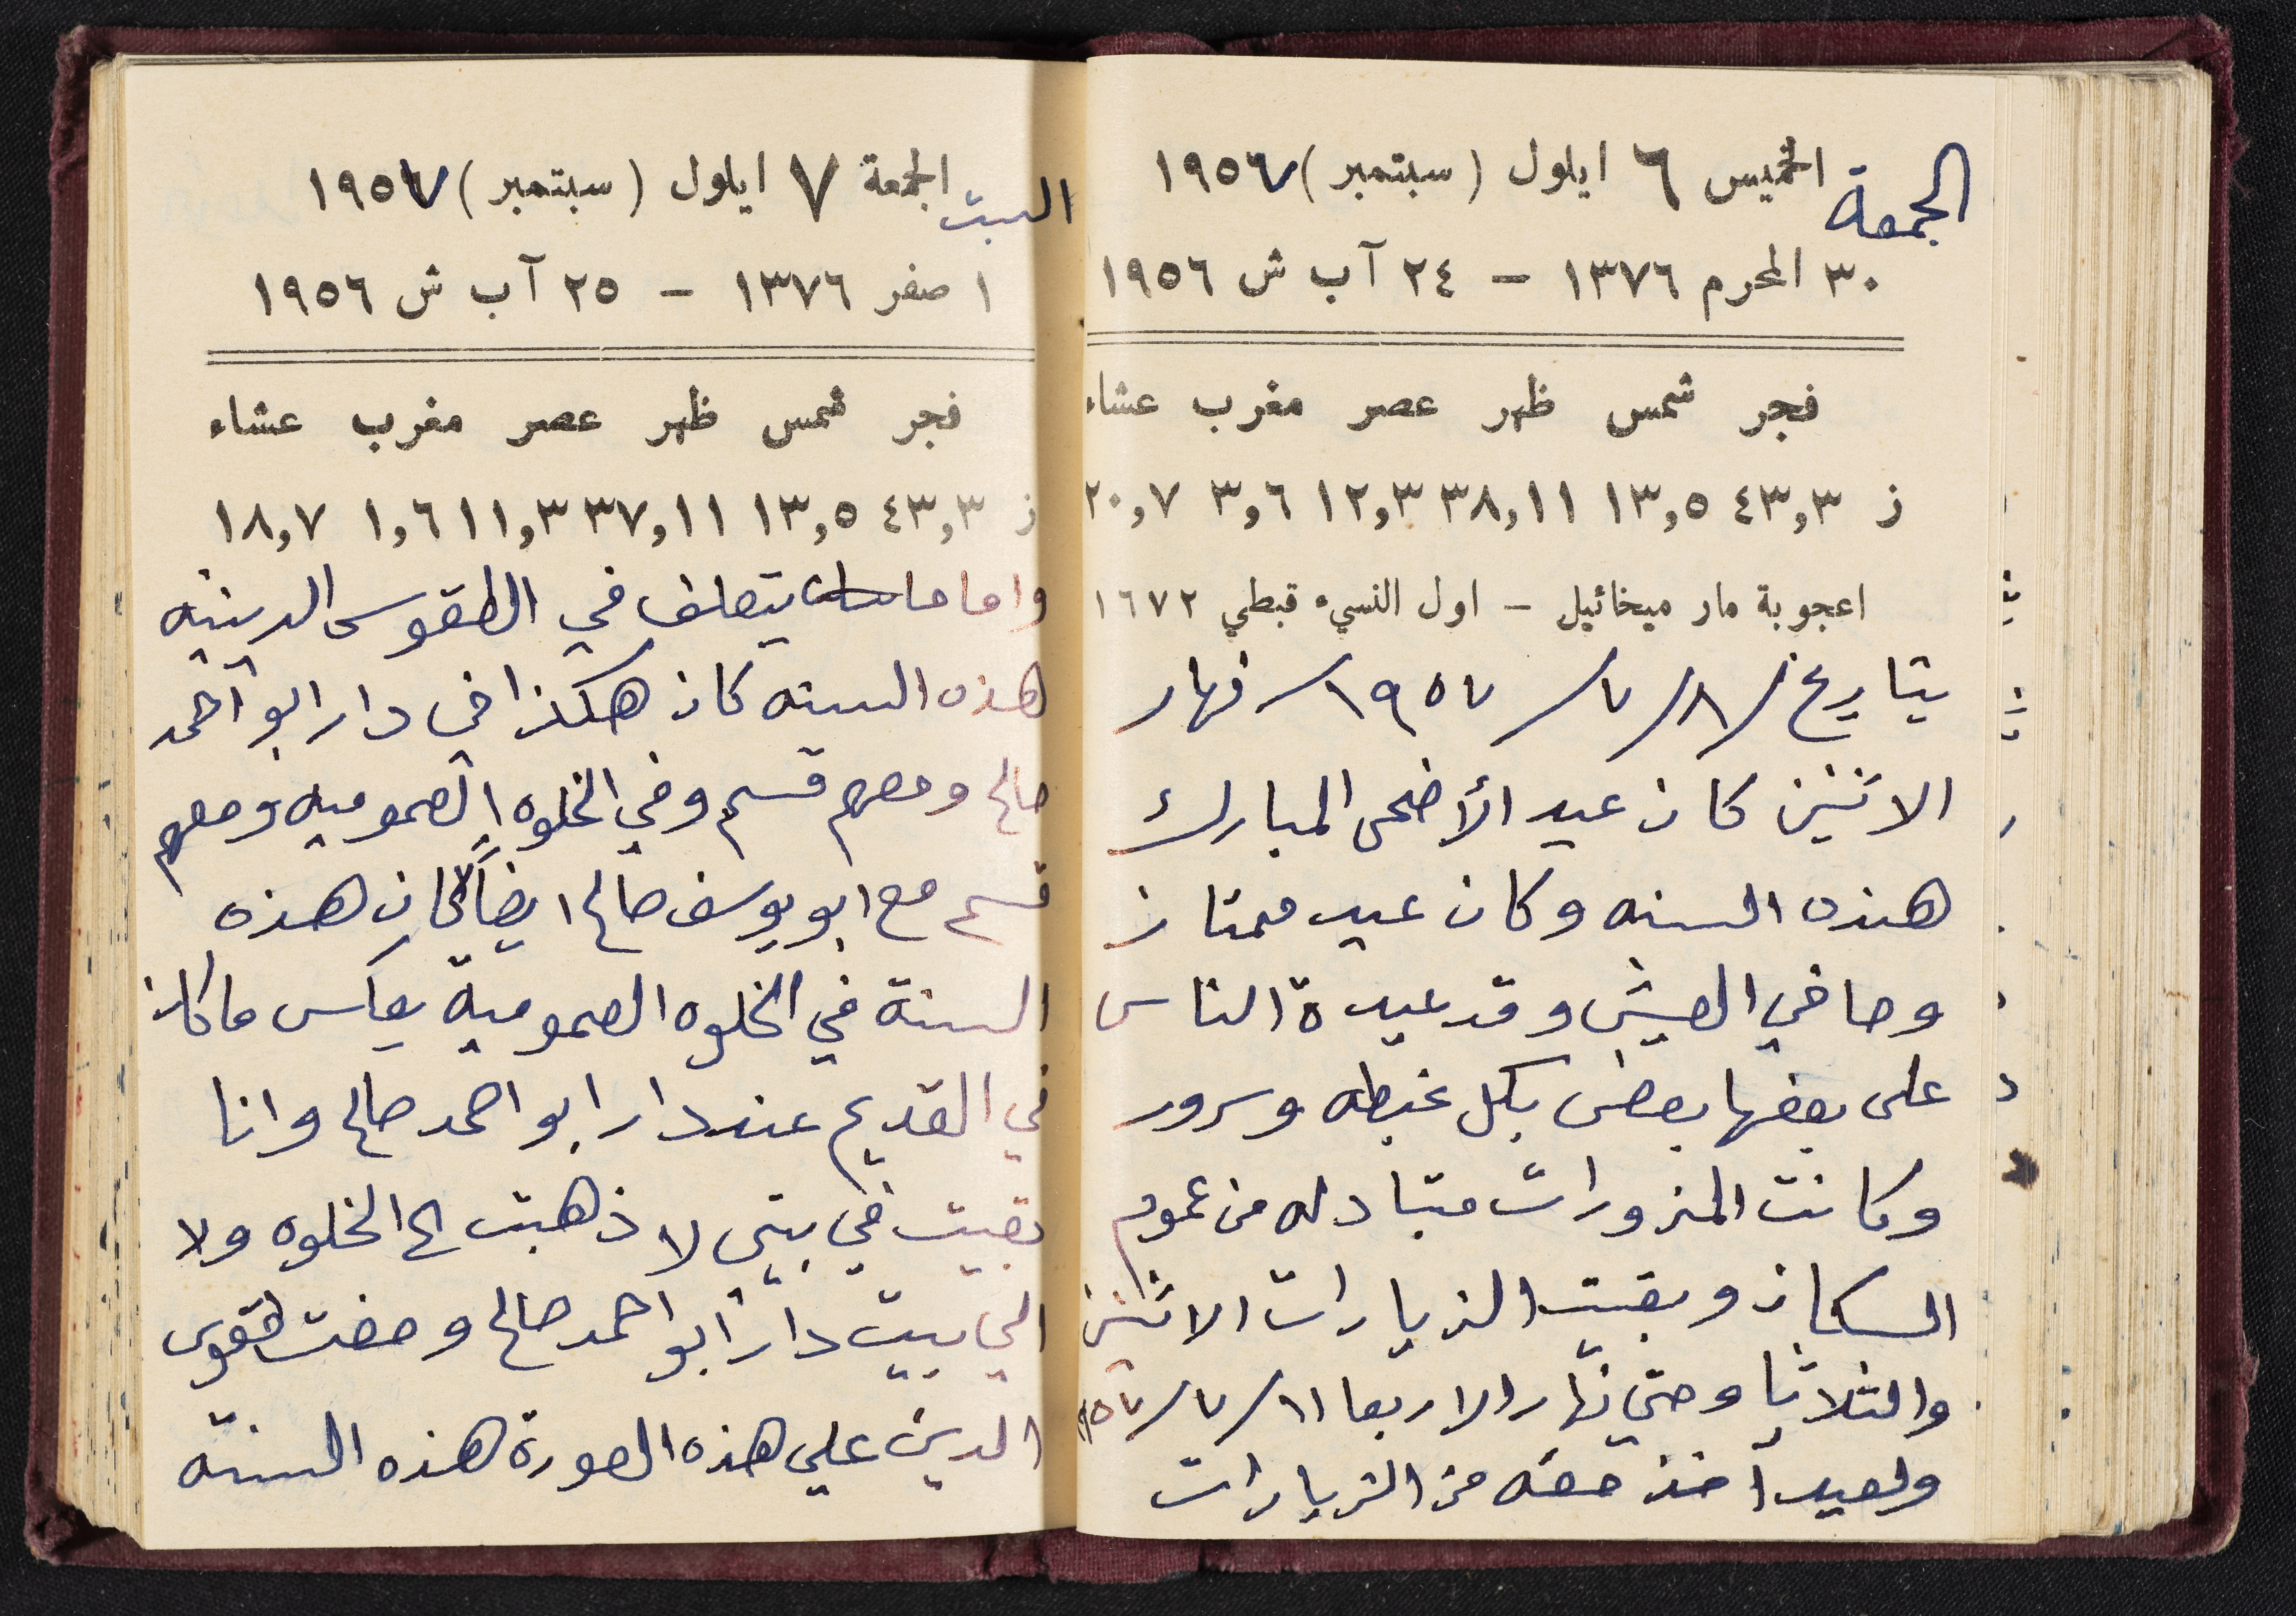 الجمعة الخميس ٦ ايلول (سبتمبر) ١٩٥٦ ٧
٣٠ المحرم ١٣٧٦ - ٢٤ آب ش ١٩٥٦
فجر شمس ظهر عصر مغرب عشاء
ز ٤٣,٣ ١٣,٥ ٣٨,١١ ١٢,٣ ٣,٦ ٢٠,٧
اعجوبة مار ميخائيل - اول النسيء قبطي ١٦٧٢
بتاريخ ٨/ ٧/ ١٩٥٧/ نهار
الاثنين كان عيد الأضحى المبارك
هذه السنه وكان عيد ممتاز
وصافي العيش وقد عيدة الناس
على بعضها بعض بكل غبطه وسرور
وكانت المزورات متبادله من عموم
السكان وبقيت الزيارات الاثنين
والثلاثا وحتى نهار الاربعا ١١/ ٧/ ٩٥٧
ولعيد أخذ حقه من الزيارات
السبت الجمعة ٧ ايلول (سبتمبر) ١٩٥٦ ٧
١ صفر ١٣٧٦ - ٢٥ آب ش ١٩٥٦
فجر شمس ظهر عصر مغرب عشاء
ز ٤٣,٣ ١٣,٥ ٣٧,١١ ١١,٣ ١,٦ ١٨,٧
واما ما يتعلق في الطقوس الدينيه
هذه السنه كان هكذا في دار ابو أحمد
صالح ومعهم قسم وفي الخلوه العموميه ومعهم
قسم مع ابو يوسف صالح ايضاً كان هذه
السنة في الخلوه العمومية بعكس ما كان
في القديم عند دار ابو احمد صالح وانا
بقيت في بيتي لا ذهبت الى الخلوه ولا
الى بيت دار ابو احمد صالح ومضت طقوس
الدين على هذه الصورة هذه السنه